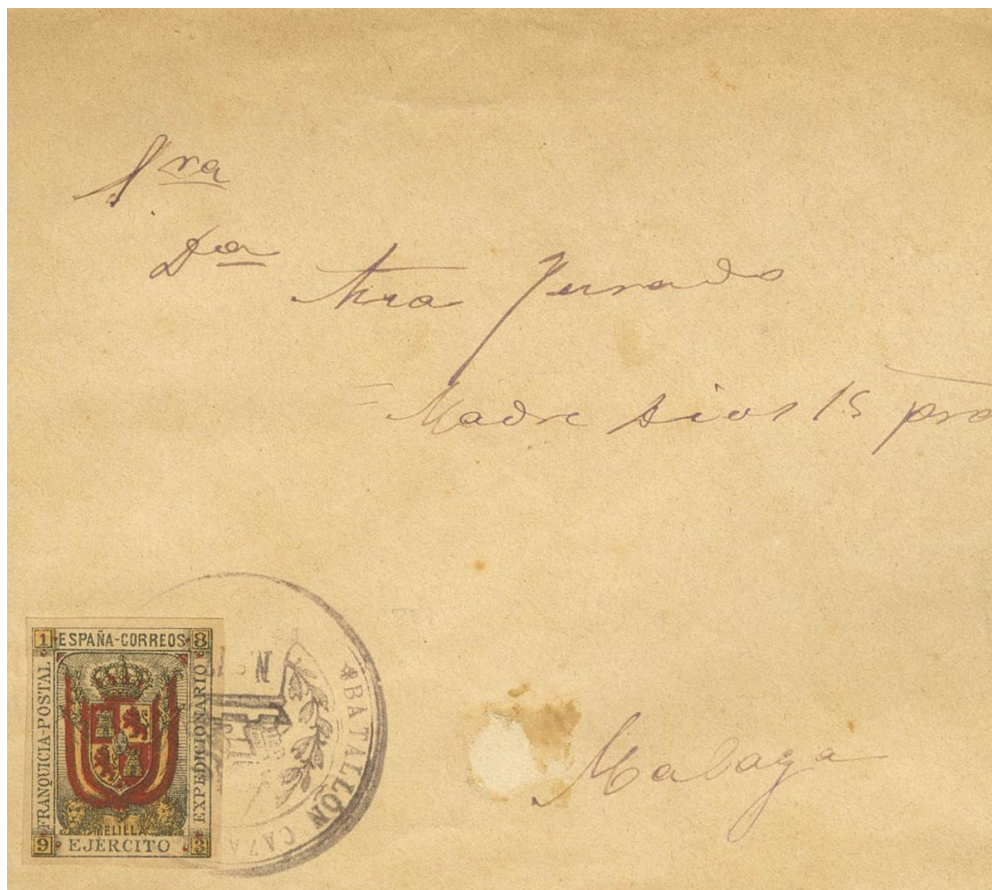 Sra
Da Ana Jurado
= Madre Dios 15 pral
Malaga
1 ESPAÑA-CORREOS 8
FRANQUICIA-POSTAL
EXPEDICIONARIO
MELILLA
9 EJÉRCITO 3
BATALLÓN CAZA